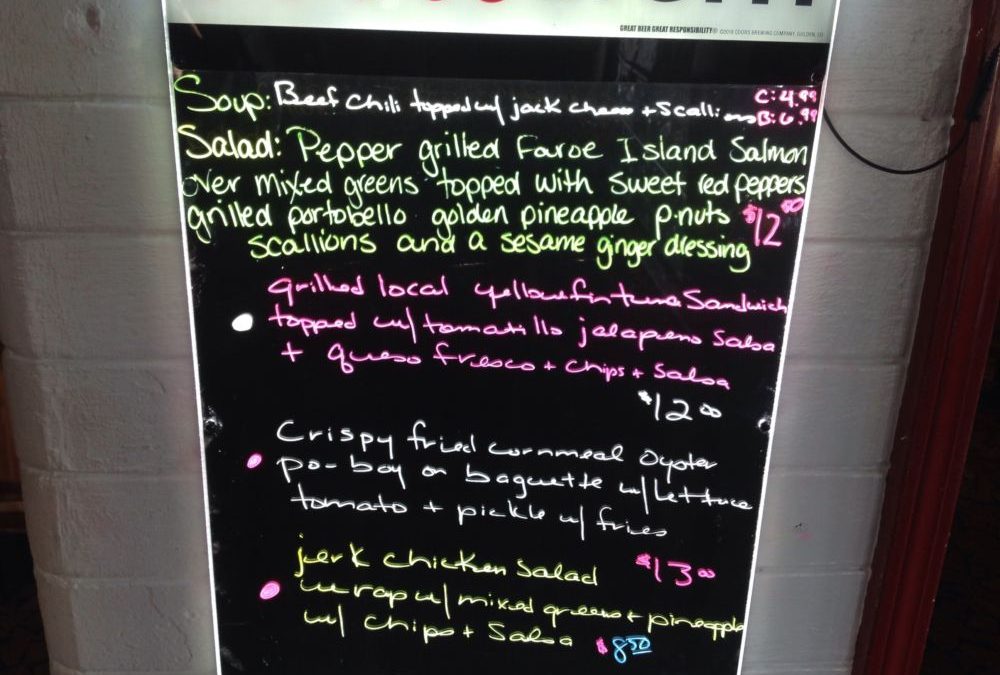 GREAT BEER GREAT RESPONSIBILITY® ©2010 COORS BREWING COMPANY, GOLDEN, CO
Soup: Beef Chili topped w/ jack chees + Scallions C: 4.99 B: 6.99
Salad: Pepper grilled Faroe Island Salmon
over mixed greens topped with sweet red peppers
grilled portobello golden pineapple p-nuts $12.00
scallions and a sesame ginger dressing
grilled local yellowfin tuna Sandwich
topped w/ tomatillo jalapeno Salsa
+ queso fresco + chips + Salsa
$12.00
Crispy fried cornmeal Oyster
po-boy on baguette w/ lettuce
tomato + pickle w/ fries
$13.00
jerk chicken Salad
wrap w/ mixed greens + pineapple
w/ chips + Salsa $8.50